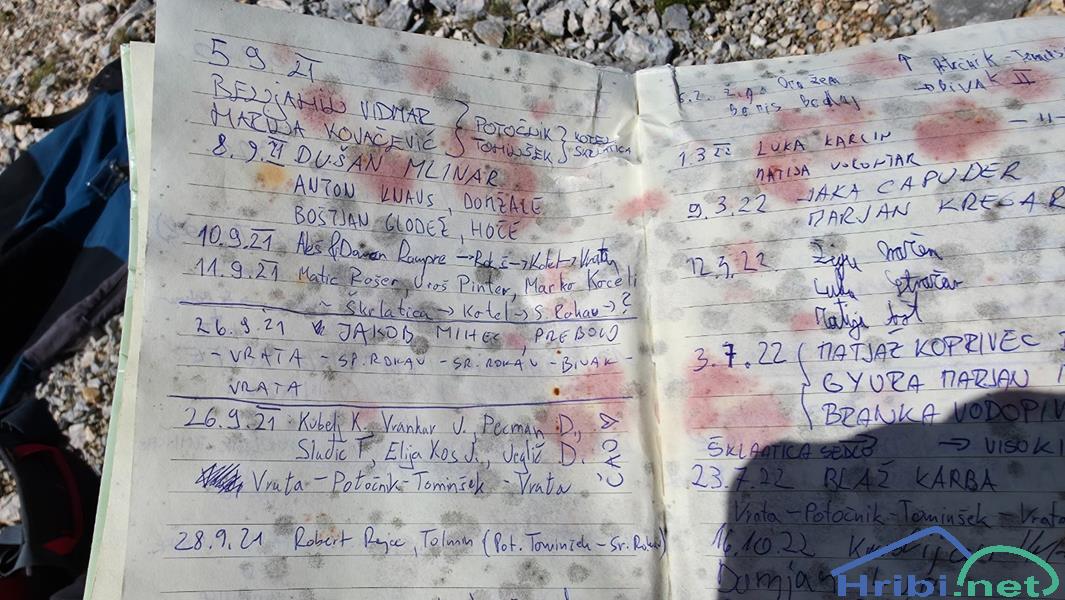 5 9 21
BENJAMIN VIDMAR
MARIJA KOVAČEVIĆ } POTOČNIK TOMINŠEK } KOTEL ŠKRLATICA
8.9.21 DUŠAN MLINAR
ANTON KLAUS, DOMŽALE
BOŠTJAN GLODEŽ, HOČE
10.9.21 → Kotel → Vrata
11.9.21 Matic Rošer, Uroš Pinter, Marko Kočeli
~ Škrlatica → Kotel → S. Rokav → ?
26.9.21 JAKOB MIHEC, PREBOLD
- VRATA - SP. ROKAV - SR. ROKAV - BIVAK -
VRATA
26.9.21 Kobelj K., Vrankar J., Pecman D.,
Sladič T., Elija Kos J., Jeglič D.
Vrata - Potočnik - Tominšek - Vrata
28.9.21 Robert Rejec, Tolmin (Pot. Tominšek - Sr. Rokav)
6.2. Žiga Oražem
Boris
→ BIVAK II
- 11 -
1.3 22 LUKA KARLIN
MATIJA VOLONTAR
9.3.22 JAKA CAPUDER
MARJAN KREGAR
12.3.22 Žiga
Luka
Matija
3.7.22 { MATJAŽ KOPRIVEC
GYURA MARJAN
BRANKA VODOPIV
ŠKLATICA SEDLO → VISOKI
23.7.22 BLAŽ KARBA
Vrata - Potočnik - Tominšek - Vrata
16.10.22
Damjan
Hribi.net